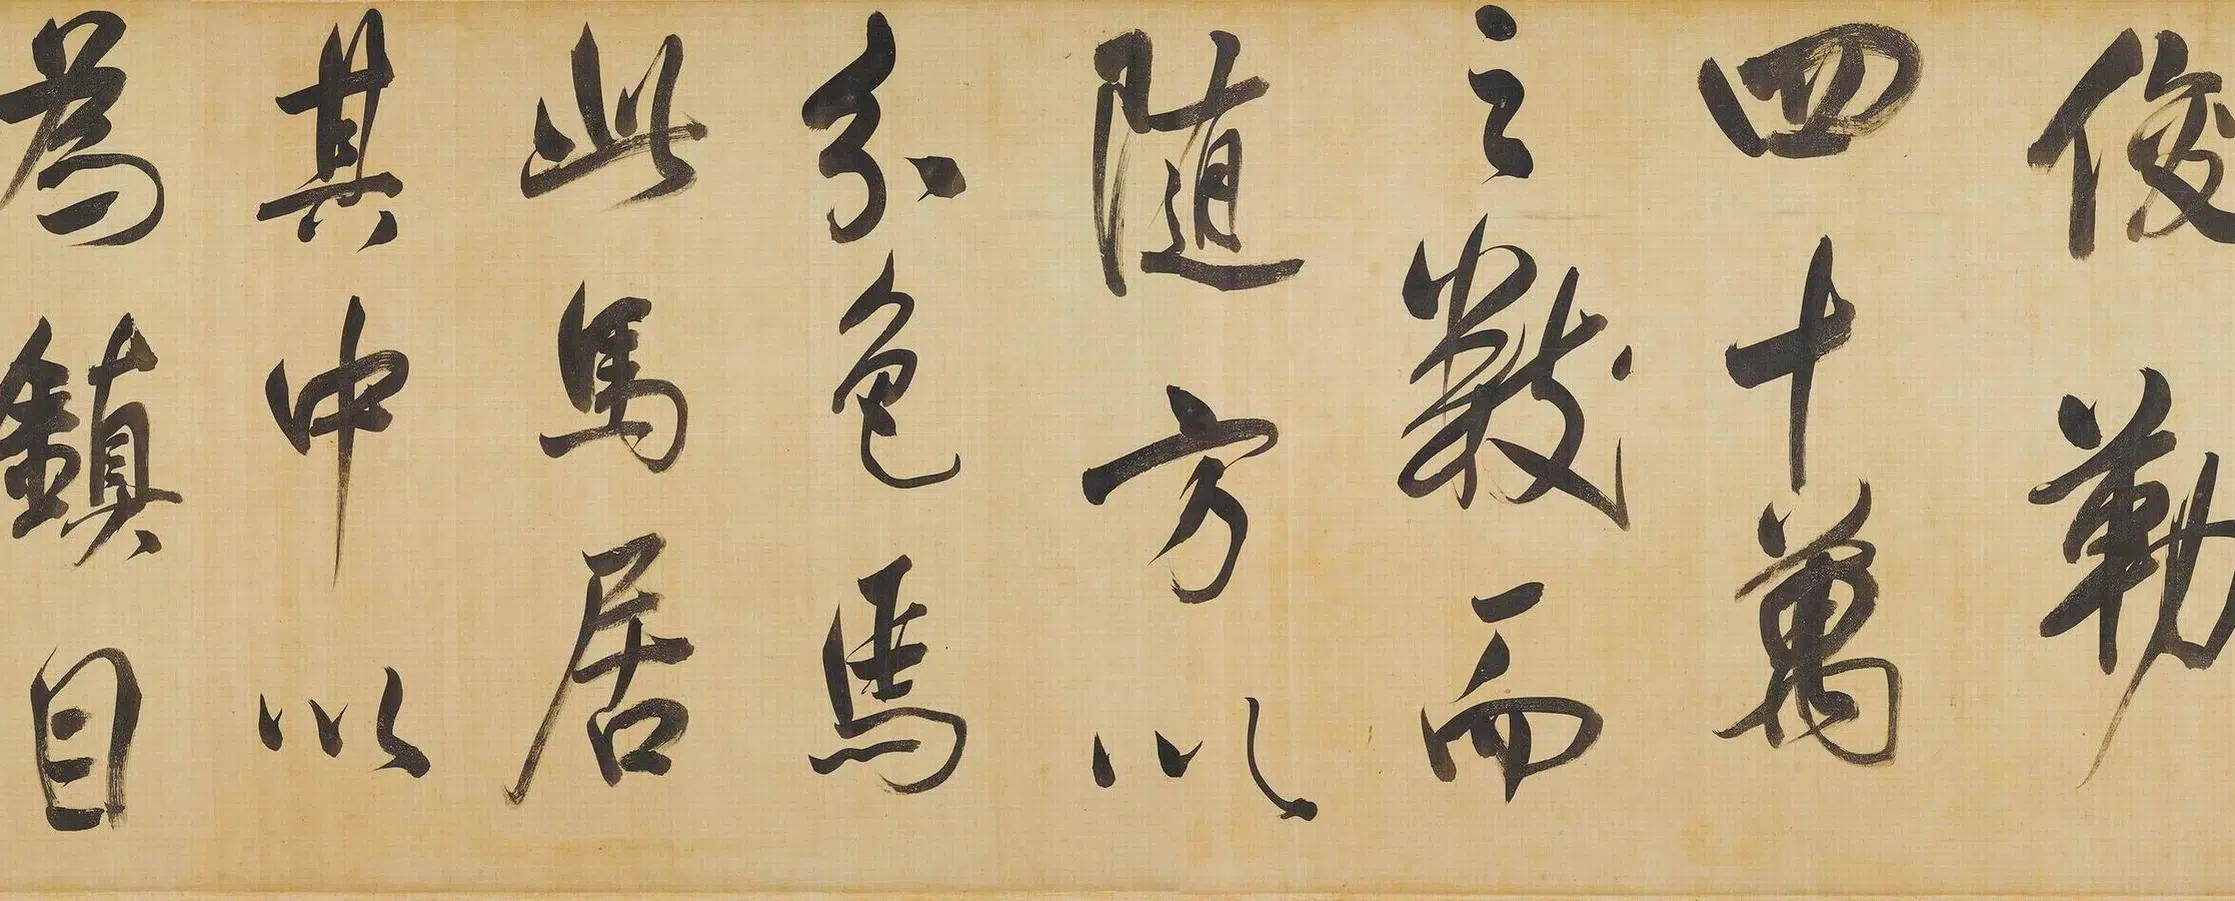 俊勒
四十萬
之數而
随方以
分色焉
此馬居
其中以
為鎮目